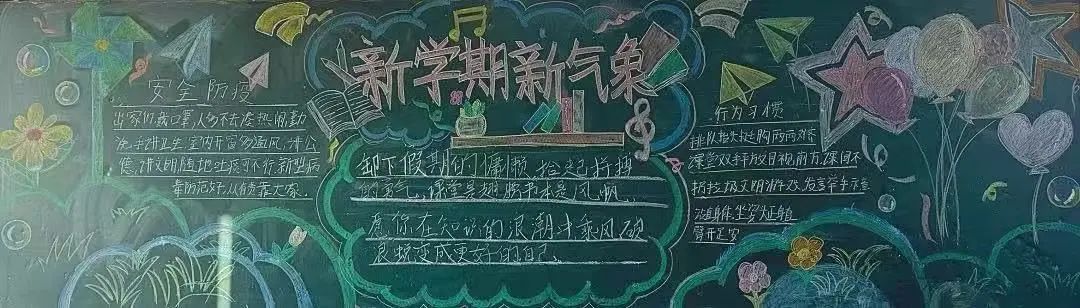 新学期新气象
安全防疫
出家门戴口罩,人多不去凑热闹,勤
洗手讲卫生,室内开窗多通风,讲公
德,讲文明,随地吐痰可不行,新型病
毒防范好,从我靠大家.
卸下假期的慵懒,拾起拼搏
的勇气,课堂是翅膀书本是风帆,
愿你在知识的浪潮中乘风破
浪蜕变成更好的自己.
行为习惯
排队抬头挺胸两两对齐
课堂双手放目视前方,课间不
挤拉做文明游戏,发言举手
身体,坐姿头正身直
臂开足安